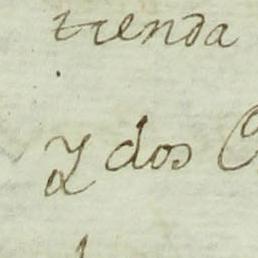 tienda
Y dos